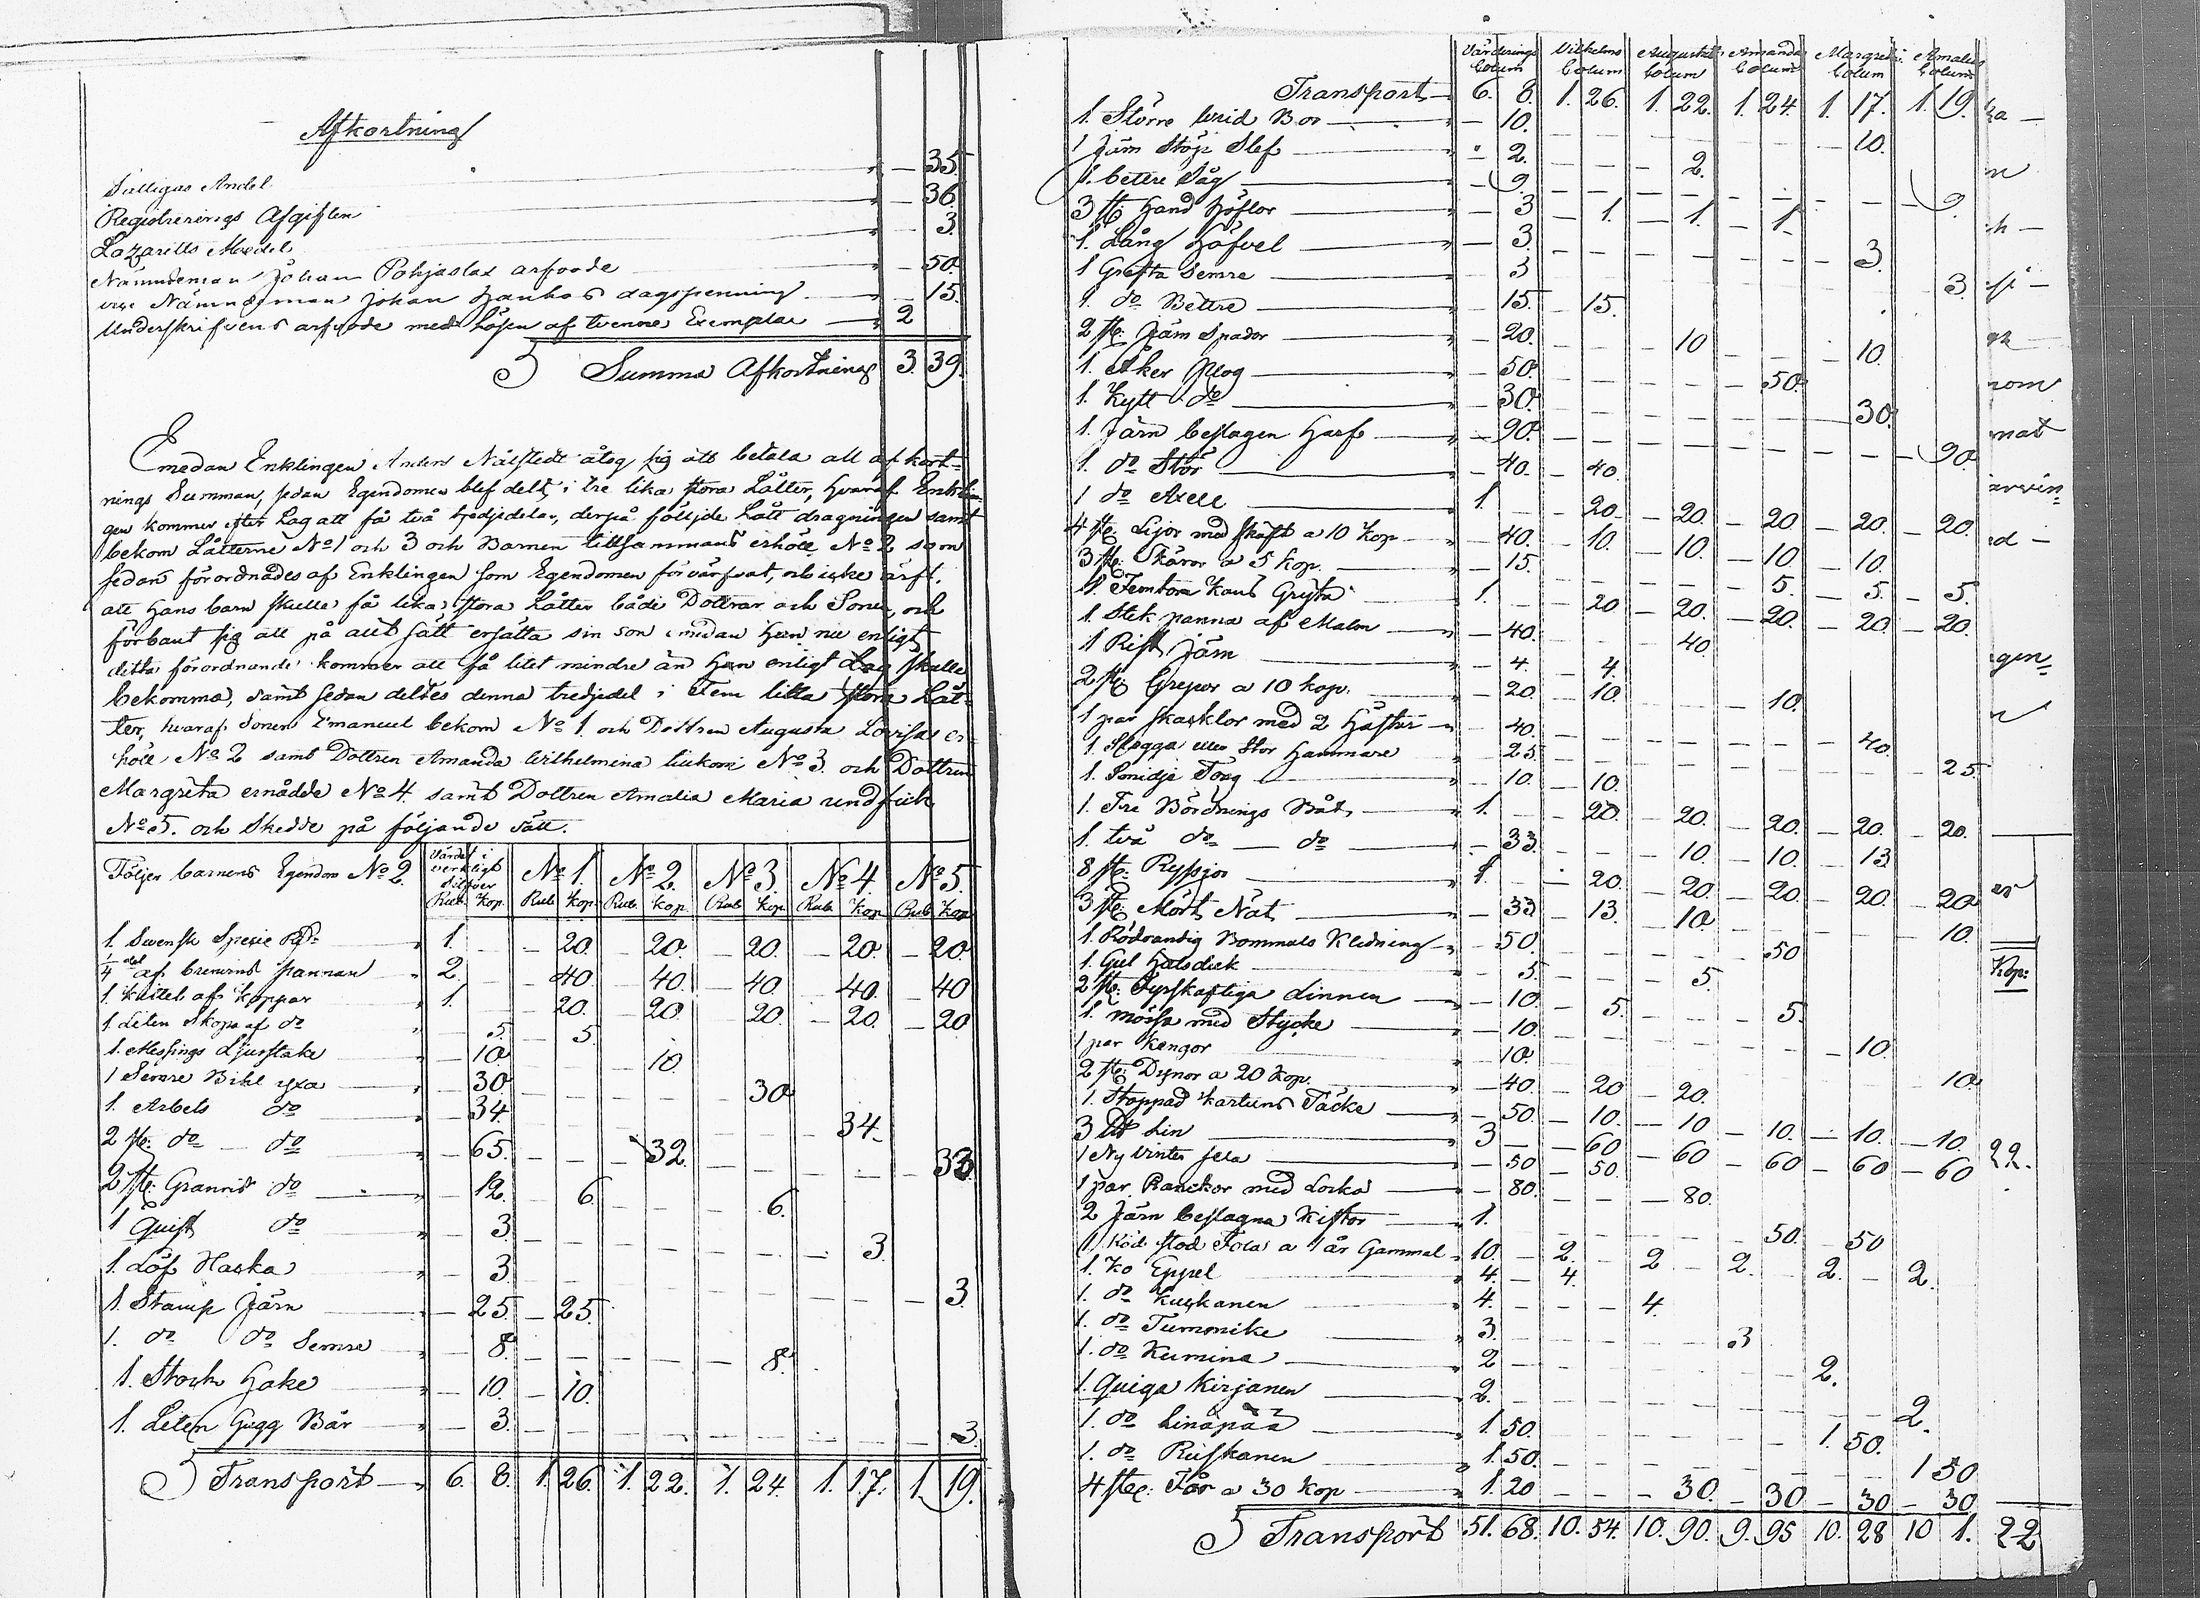 Afkortning
Fattigas Andel — 35.
Registrerings Afgiften — 36.
Lazaretts Medel — 3.
Nämndeman Johan Pohjaslax arfvode — 50.
Nämndeman Johan Hanhos dagspenning — 15.
Underskrifvens arfvode med Lösen af tvenne Exemplar 2
Summa Afkortning 3. 39.
Emedan Enklingen Anders Nålstedt åtog sig att betala all afkort-
nings Summan, sedan Egendomen blef delt, i tre lika stora Låtter, hvaraf Enklin-
gen kommer efter Lag att få två tredjedelar, derpå följde Lått dragningen samt
bekom Låtterne No 1 och 3 och Barnen tillsammans erhöll No 2 som
sedan förordnades af Enklingen som Egendomen förvärfvat, och icke ärft,
att Hans barn skulle få lika stora Låtter både Döttrar och Sonen, och
förbant sig att på allt sätt ersätta sin son emedan Han nu enligt
detta förordnande kommer att få litet mindre än Han enligt Lag skulle
bekomma, samt sedan deltes denna tredjedel i Fem lika stora Låt-
ter, hvaraf Sonen Emanuel bekom No 1 och Dottren Augusta Lovisa er-
höll No 2 samt Dottren Amanda Wilhelmina bekom No 3. och Dottren
Margreta ernådde No 4. samt Dottren Amalia Maria undfick
No 5. och Skedde på följande sätt.
Följer barnens Egendom No 2. Värdet i verkligt Silfver No 1. No 2. No 3. No 4. No 5.
Rub. Kop. Rub. Kop. Rub. Kop. Rub. Kop. Rub. Kop. Rub. Kop.
1. Svensk Spesie Rd 1. — — 20. 20. 20. 20. 20
1/4 del af brenvins pannan 2. — 40 40. 40 40. 40
1. Kittel af Koppar 1. — 20. 20 20. 20. 20
1. Liten Skopa af do 5. — 5
1. Messings Ljusstake — 10. — 10
1 Större Bihl yxa — 30 — 30
1. Arbets do — 34. — 34.
2 st. do — do — 65. — 32. — 33.
2 st. Grannis do — 12. — 6. — 6.
1 Quist do — 3. — 3.
1. Löf Hacka — 3. — 3.
1. Stamp Järn — 25. — 25.
1. do do Semre — 8. — 8.
1. Stock Hake — 10. — 10.
1. Liten Gugg Bår — 3. — 3.
Transport 6. 8. 1. 26. 1. 22. 1. 24. 1. 17. 1. 19.
Värderings Colum Vilhelms Colum Augustas Colum Amandas Colum Margretas Colum Amalias Colum
Transport 6. 8. 1. 26. 1. 22. 1. 24. 1. 17. 1. 19.
1. Större Vrid Bor — 10. — 10.
1 Järn Stöp Slef — 2. — 2.
1. bettre Såg — 9 — 9.
3 st. Hand Höflor — 3 — 1. — 1. — 1.
1. Lång Höfvel — 3. — 3.
1 Grefta Semre — 3 — 3.
1. do Bettre — 15. — 15.
2 st. Järn Spador — 20. — 10 — 10.
1. Åker Plog — 50. — 50.
1. Kytt do — 30. — 30.
1. Järn beslagen Harf — 90. — 90.
1. do Stör — 40. — 40.
1 do Axell 1. — 20. — 20. — 20 — 20. — 20.
4 st. Lijor med skaft a 10 Kop — 40. — 10. — 10. — 10. — 10.
3 st. Skäror a 5 Kop. — 15. — 5. — 5. — 5.
1. Femton Kans Gryta 1. — 20 — 20. — 20. — 20 — 20.
1. Stek panna af Malm — 40. — 40.
1 Rist Järn — 4. — 4.
2 st. Grepar a 10 kop. — 20. — 10. — 10.
1 par skacklor med 2 Häster — 40. — 40
1. Slägga eller Stor Hammare — 25. — 25.
1. Smidje Tång — 10. — 10.
1. Tre Bördnings Båt 1. — 20. — 20. — 20. — 20. — 20.
1. två do — do — 33. — 10. — 10. — 13
8 st. Ryssjor 1. — 20. — 20. — 20. — 20. — 20
3 st. Mört Nät — 33 — 13. — 10. — 10.
1. Rödrandig Bommuls Kledning — 50. — 50
1. Gul Halsduk — 5. — 5.
2 st. Fyrskaftiga Linnen — 10. — 5. — 5.
1. Mössa med Stycke — 10. — 10.
1 par Kengor — 10. — 10.
2 st. Dynor a 20 Kop. — 40. — 20 — 20.
1. Stoppad Kartuns Täcke — 50. — 10. — 10 — 10. — 10. — 10.
3 Lin 3 — 60 — 60 — 60 — 60 — 60
1 Ny Vinter — 50 — 50.
1 par Ranckor med Locka — 80. — 80.
2 Järn beslagna Kistor 1. — 50. — 50
1. Röd stod Fola a 1 år Gammal 10. — 2. — 2 — 2. — 2. — 2.
1. Ko Eppel 4. — 4.
1. do Kuckanen 4. — 4
1. do Tummike 3. — 3
1. do Kumina 2 — 2.
1. Quiga Kirjanen 2. — 2.
1. do Linapää 1. 50. — 1. 50.
1. do Ruskanen 1. 50. — 1 50
4 st. Får a 30 Kop 1. 20 — 30. — 30 — 30 — 30
Transport 51. 68. 10. 54. 10. 90. 9. 95 10. 28 10 1.
Kop:
22.
22